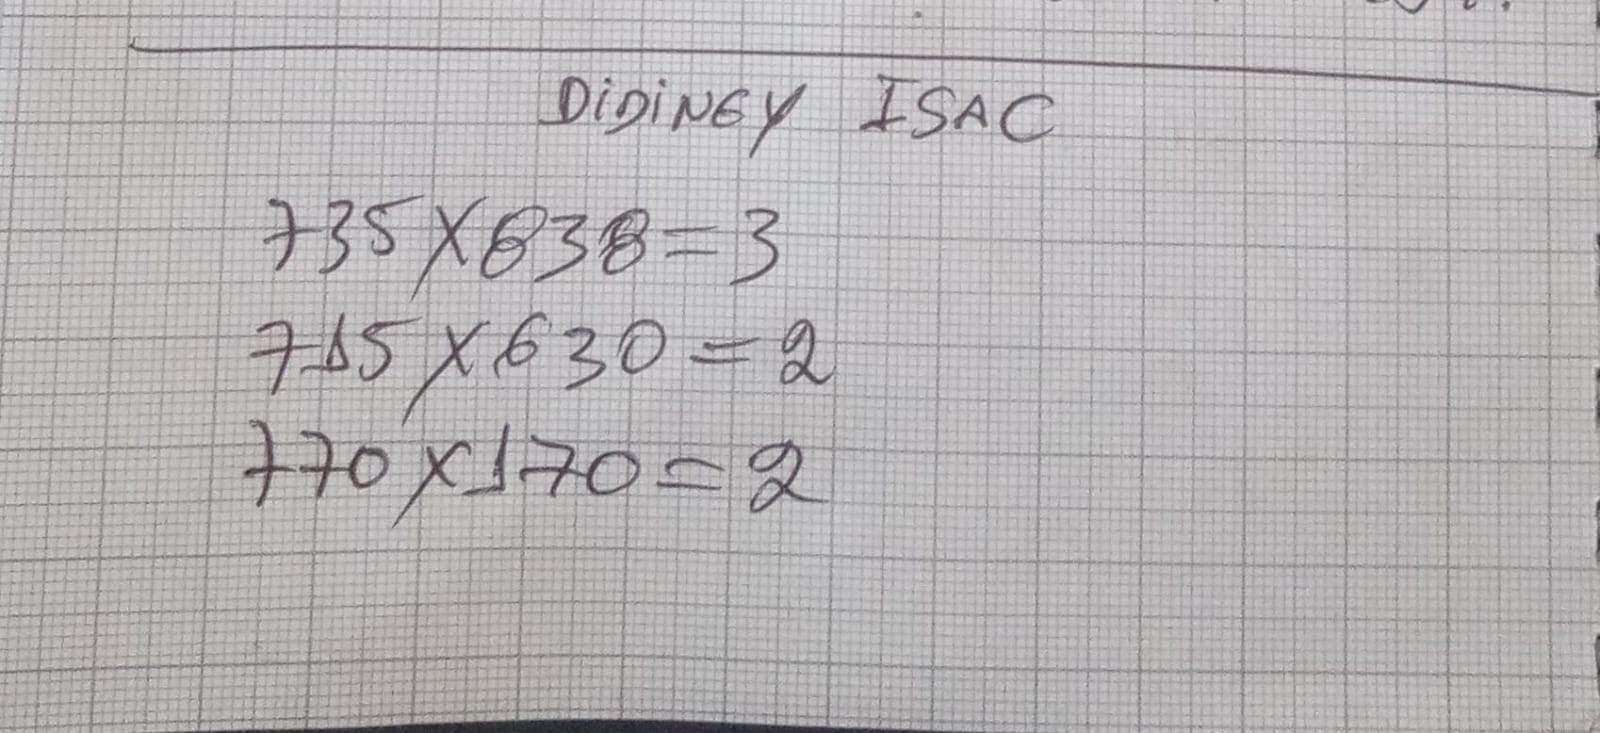 DiDiNGY ISAC
735X638=3
715X630=2
770X170=2